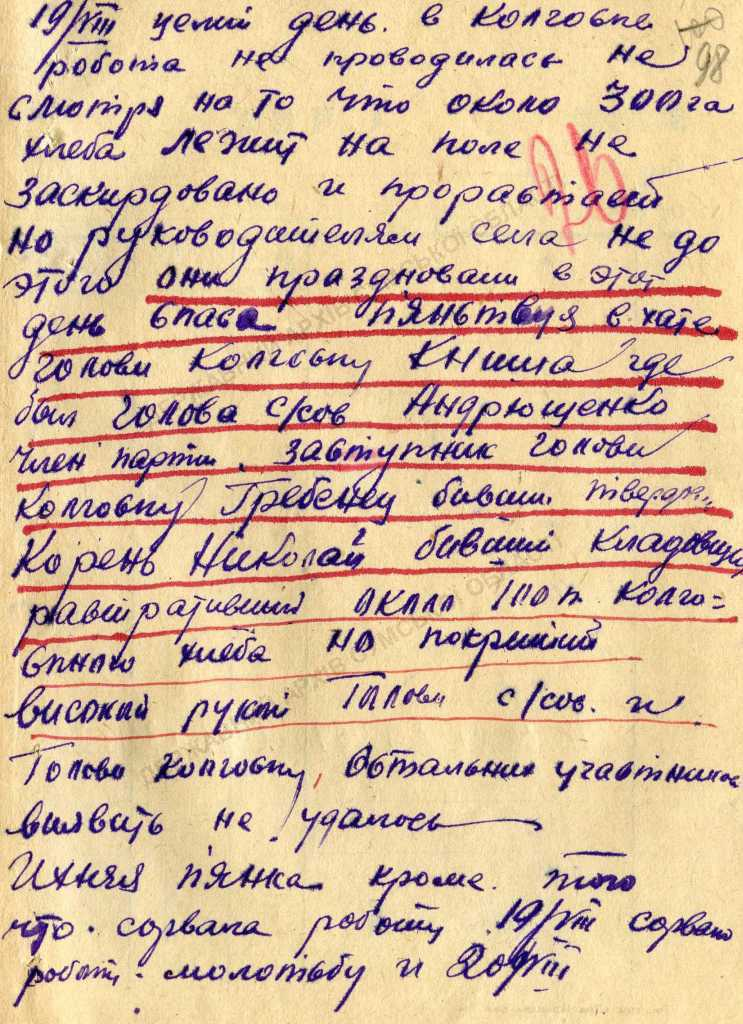 19/VIII целий день. в колговпе
98
робота не проводилась не
смотря на то что около 300 га
хлеба лежит на поле не
26
заскирдовано и прораbтает
но руководителям села не до
этого они праздновали в этот
день спаса пянствуя в хате
голови колгоспу Книша где
был голова с/сов Андрющенко
член партии. заступник голови
колгоспу Гребенец бивши. твердо
Корень Николай бивший кладовщик
растративший около 100 п колго=
спного хлеба но покритий
високай рукой Голови с/сов. и
Голови колгоспу, Остальних участников
виявить не удалось
Ихняя пянка кроме. того
что. сорвала роботу 19/VIII сорвано
роботи. молотьбу и 20/VIII